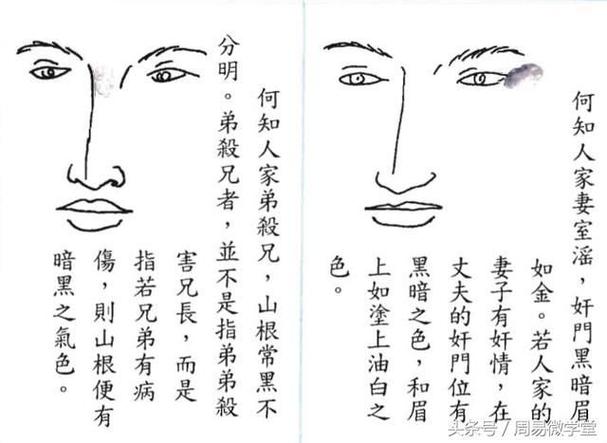 何知人家妻室滛，奸門黑暗眉
如金。若人家的
妻子有奸情，在
丈夫的奸門位有
黑暗之色，和眉
上如塗上油白之
色。
何知人家弟殺兄，山根常黑不
分明。弟殺兄者，並不是指弟弟殺
害兄長，而是
指若兄弟有病
傷，則山根便有
暗黑之氣色。
头条号 / 周易微学堂